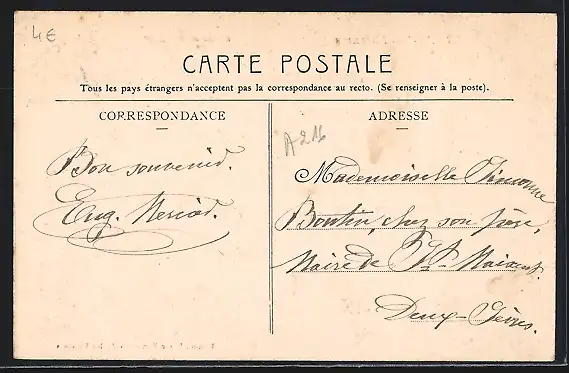 4€
CARTE POSTALE
Tous les pays étrangers n'acceptent pas la correspondance au recto. (Se renseigner à la poste).
CORRESPONDANCE
ADRESSE
A216
Bon souvenir.
Eug.
Mademoiselle
Boutin, chez son père,
Maire de St Maixent
Deux-Sèvres.